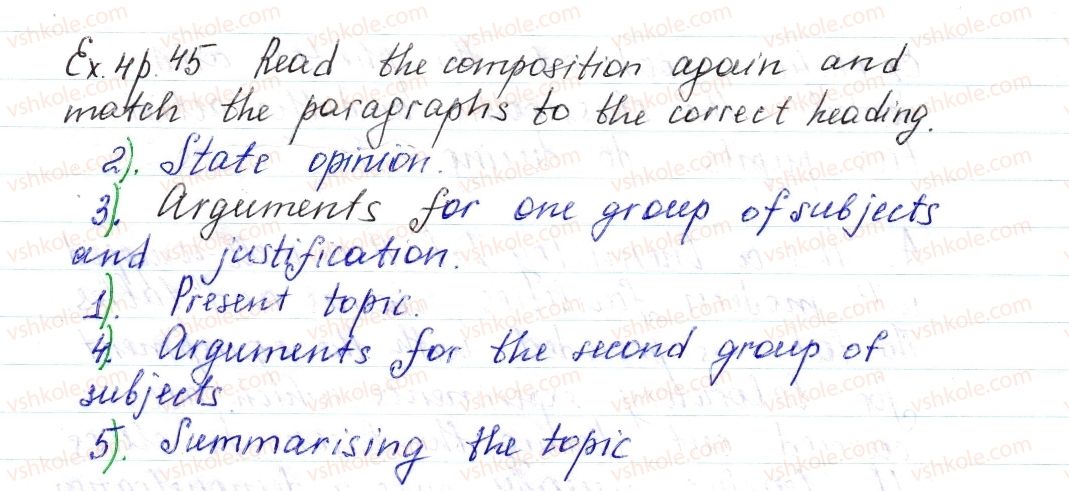 Ex. 4 p. 45 Read the composition again and
match the paragraphs to the correct heading.
2). State opinion.
3). Arguments for one group of subjects
and justification.
1). Present topic.
4). Arguments for the second group of
subjects
5). Summarising the topic